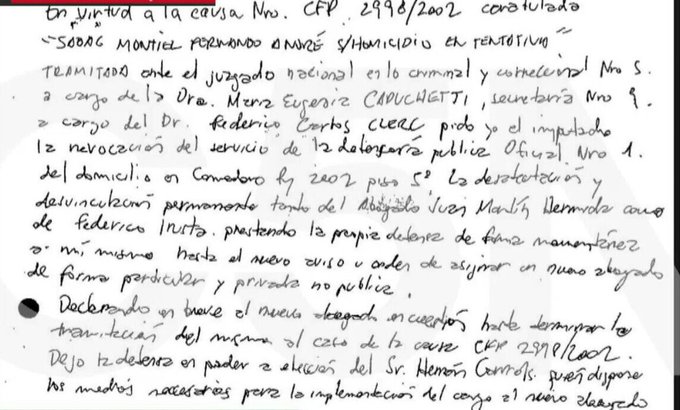 En virtud a la causa Nro. CFP 2998/2002 caratulada
"SABAG MONTIEL FERNANDO ANDRÉ S/HOMICIDIO EN TENTATIVA"
TRAMITADA ante el juzgado nacional en lo criminal y correccional Nro 5.
a cargo de la Dra. Maria Eugenia CAPUCHETTI, secretaría Nro 9.
a cargo del Dr. Federico Carlos CLERC pido yo el imputado
la revocación del servicio de la defensoría publica Oficial Nro 1.
del domicilio en Comodoro Py 2002 piso 5º la
desvinculación permanente tanto del Abogado Juan Martín Hermida como
de Federico Irusta. prestando la propia defensa de forma momentánez
a mí mismo hasta el nuevo aviso u orden de asignar un nuevo abogado
de forma particular y privada no publica.
Declarando en breve al nuevo abogado en cuestión hasta la
del mismo al caso de la causa CFP 2998/2002.
Dejo la defensa en poder a elección del Sr. Hernán quién dispone
los medios necesarios para la implementación del cargo al nuevo abogado
C5N